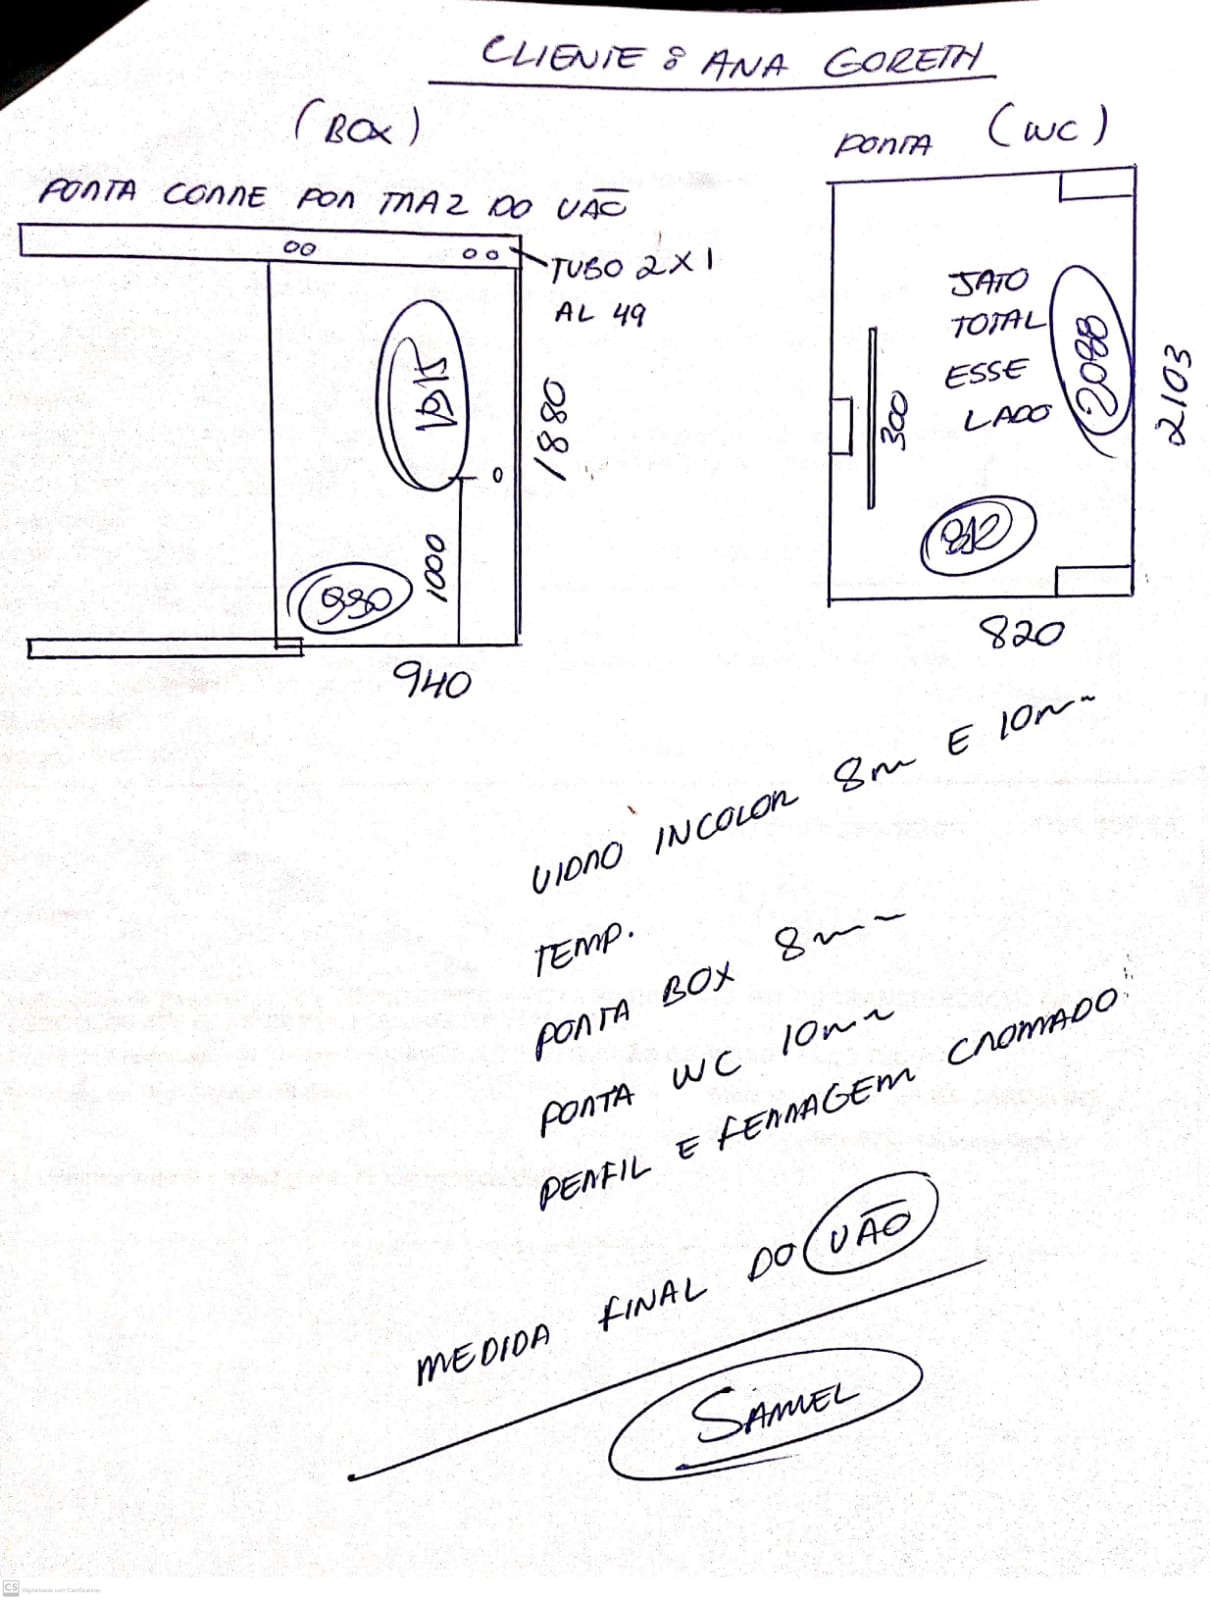 CLIENTE: ANA GORETH
(BOX)
PORTA CORRE POR TRAZ DO VÃO
TUBO 2X1
AL 49
1880
1000
990
940
PORTA (WC)
JATO
TOTAL
ESSE
LADO
2088
2103
300
812
820
VIDRO INCOLOR 8m E 10mm
TEMP.
PORTA BOX 8mm
PORTA WC 10mm
PERFIL E FERRAGEM CROMADO
MEDIDA FINAL DO VÃO
SAMUEL
CS Digitalizado com CamScanner